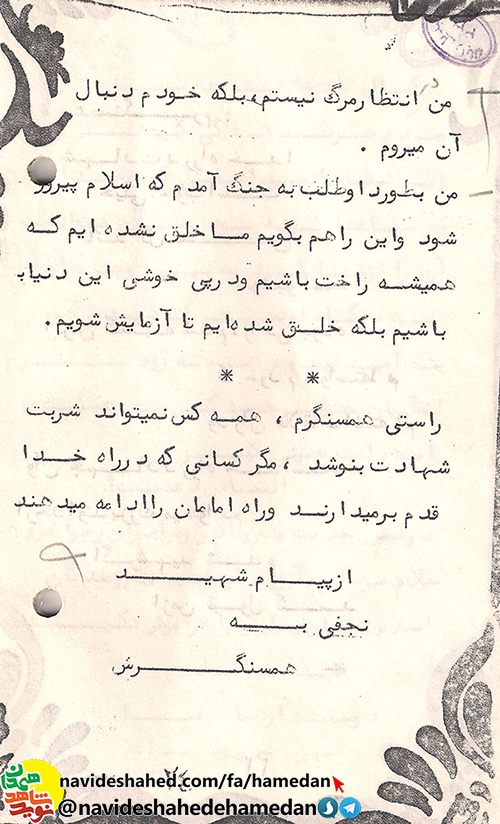 من انتظار مرگ نیستم، بلکه خودم دنبال
آن میروم .
من بطور داوطلب به جنگ آمدم که اسلام پیروز
شود واین را هم بگویم ما خلق نشده ایم که
همیشه راحت باشیم ودرپی خوشی این دنیا
باشیم بلکه خلق شده‌ایم تا آزمایش شویم.
* *
راستی همسنگرم ، همه کس نمیتواند شربت
شهادت بنوشد ، مگر کسانی که در راه خدا
قدم برمیدارند وراه امامان را ادامه میدهند
از پیام شهید
نجفی به
همسنگرش
navideshahed.com/fa/hamedan
@navideshahedehamedan
نوید شاهد همدان